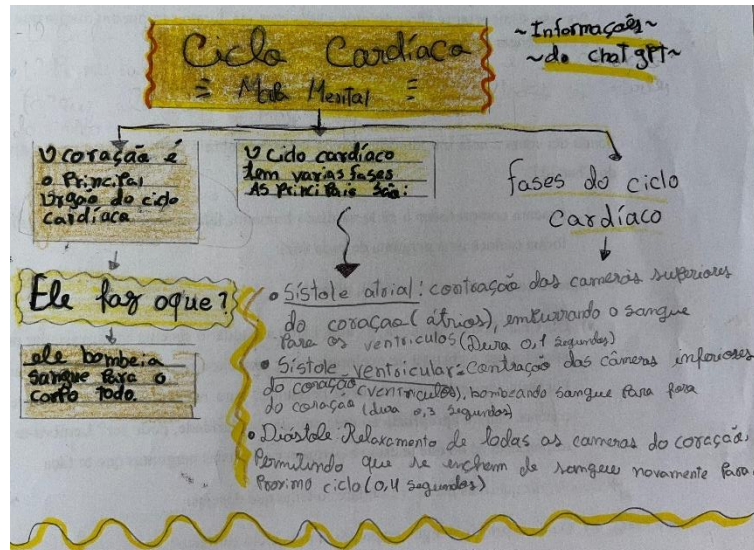 Ciclo Cardíaca
= Mapa Mental =
~Informações~
~do chat gpt~
O coração é
o Principal
Orgão do ciclo
cardíaca
O Ciclo cardíaco
tem varias fases
As principais são:
fases do ciclo
cardíaco
Ele faz oque?
ele bombeia
sangue Para o
corpo todo.
• Sístole atrial: contração das cameras superiores
do coração (átrios), empurrando o sangue
Para os ventriculos (Dura 0,1 segundos)
• Sístole ventricular: Contração das câmeras inferiores
do coração (ventriculos), bombeando sangue Para fora
do coração (dura 0,3 segundos)
• Diástole: Relaxamento de todas as cameras do coração,
Permitindo que se enchem de sangue novamente Para
Proximo ciclo (0,4 segundos)